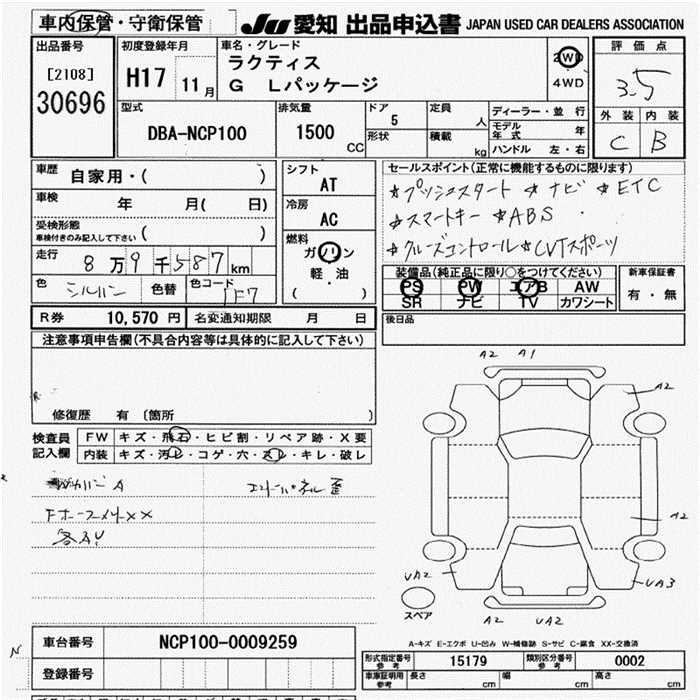 車内保管・守衛保管
JU 愛知 出品申込書 JAPAN USED CAR DEALERS ASSOCIATION
出品番号
[2108]
30696
初度登録年月
H17 11月
車名・グレード
ラクティス
G Lパッケージ
2WD
4WD
評価点
3.5
外装 内装
C B
型式
DBA-NCP100
排気量
1500 CC
ドア
5
形状
定員
人
積載
kg
ディーラー・並行
モデル年式 年
ハンドル 左・右
車歴 自家用・( )
車検 年 月( 日)
受検形態
車検付きのみ記入して下さい ( )
走行 8万9千587km
色 シルバー 色替 色コード 1F7
シフト
AT
冷房
AC
燃料
ガソリン
軽・油
( )
セールスポイント(正常に機能するものに限ります)
☆プッシュスタート ☆ナビ ☆ETC
☆スマートキー ☆ABS
☆クルーズコントロール ☆CVTスポーツ
装備品(純正品に限り○をつけてください)
PS PW エアB AW
SR ナビ TV カワシート
新車保証書
有・無
R券 10,570 円 名変通知期限 月 日
後日品
注意事項申告欄(不具合内容等は具体的に記入して下さい)
修復歴 有 〔箇所 〕
検査員記入欄
FW キズ・飛石・ヒビ割・リペア跡・X要
内装 キズ・汚レ・コゲ・穴・スレ・キレ・破レ
A
XX
A2 A1
A2
A2
UA2
UA3
スペア
A2 UA2
A-キズ E-エクボ U-凹み W-補修跡 S-サビ C-腐食 XX-交換済
車台番号 NCP100-0009259
登録番号
N
型式指定番号 参考 15179 類別区分番号 参考 0002
車庫証明用参考 長さ cm 幅 cm 高さ cm